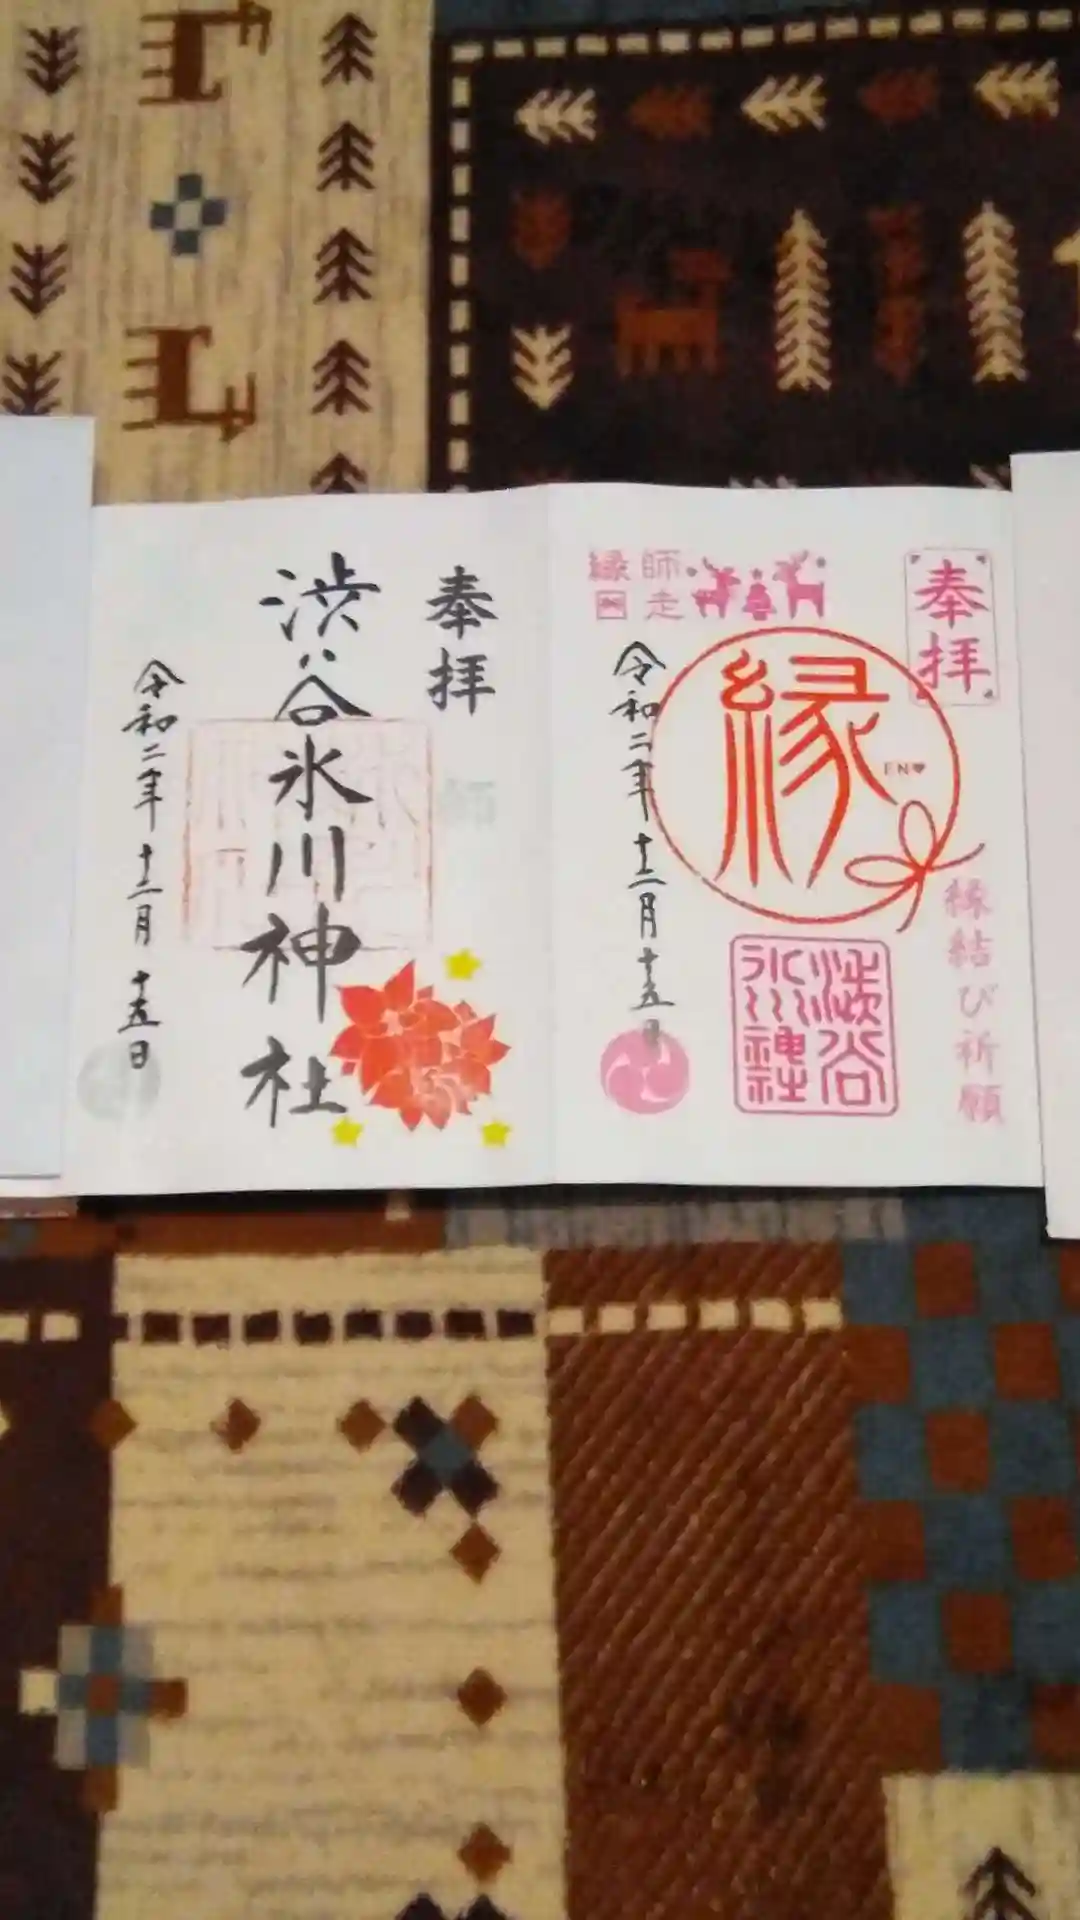 奉拝
師走
縁日
縁
EN♥
縁結び祈願
渋谷
氷川
神社
令和二年十二月十五日
奉拝
渋谷氷川神社
令和二年十二月十五日